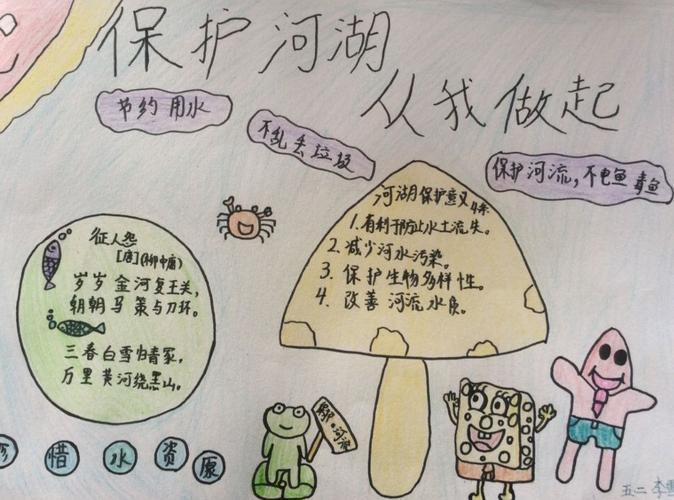 保护河湖
从我做起
节约用水
不乱丢垃圾
保护河流,不电鱼毒鱼
河湖保护意义4条
1.有利于防止水土流失。
2.减少河水污染。
3.保护生物多样性。
4.改善河流水质。
征人怨
[唐](柳中庸)
岁岁金河复王关,
朝朝马策与刀环。
三春白雪归青冢,
万里黄河绕黑山。
珍惜水资原
五二 李